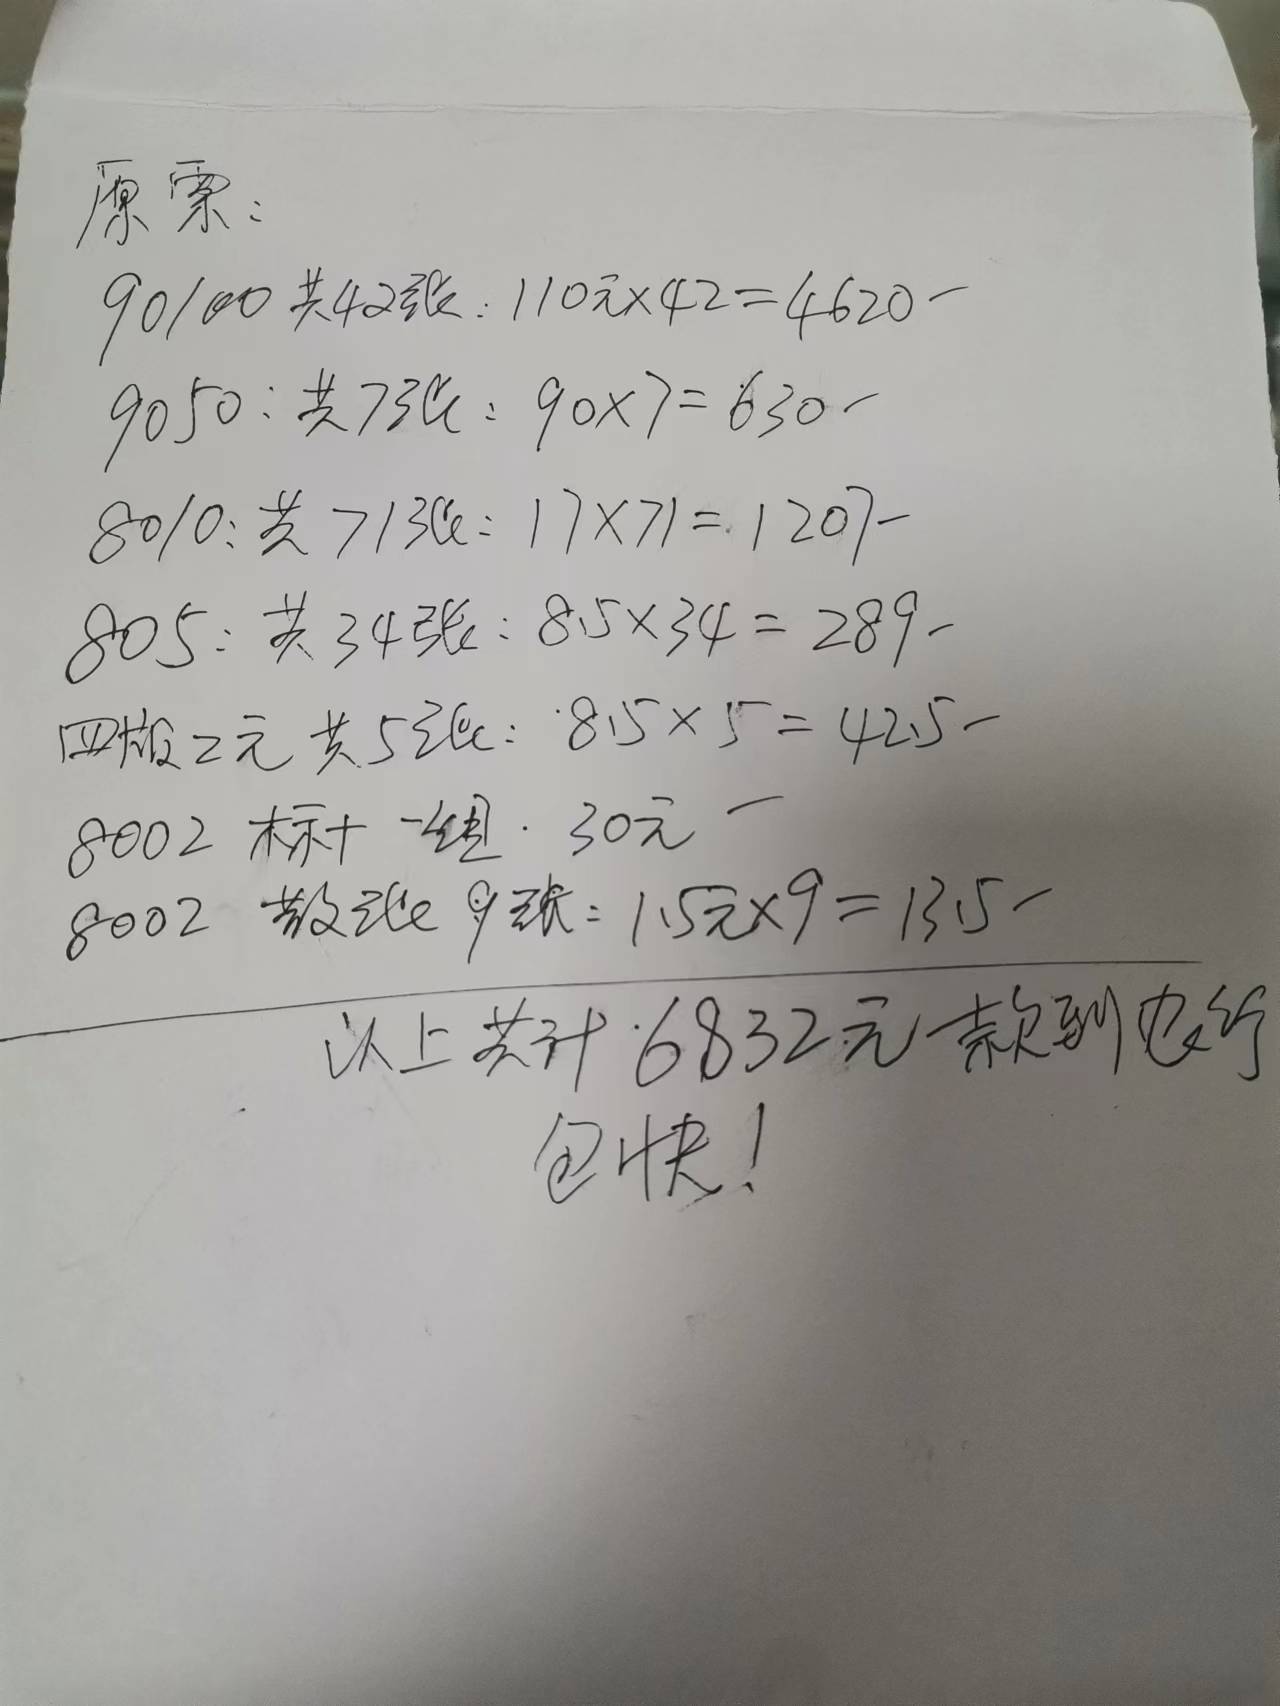 原票:
90100 共42张: 110元×42=4620-
9050: 共7张: 90×7=630-
8010: 共71张: 17×71=1207-
805: 共34张: 8.5×34=289-
四版2元 共5张: 8.5×5=42.5-
8002 标十 一组. 30元-
8002 散张 9张: 1.5元×9=13.5-
以上共计6832元款到农行
包快!